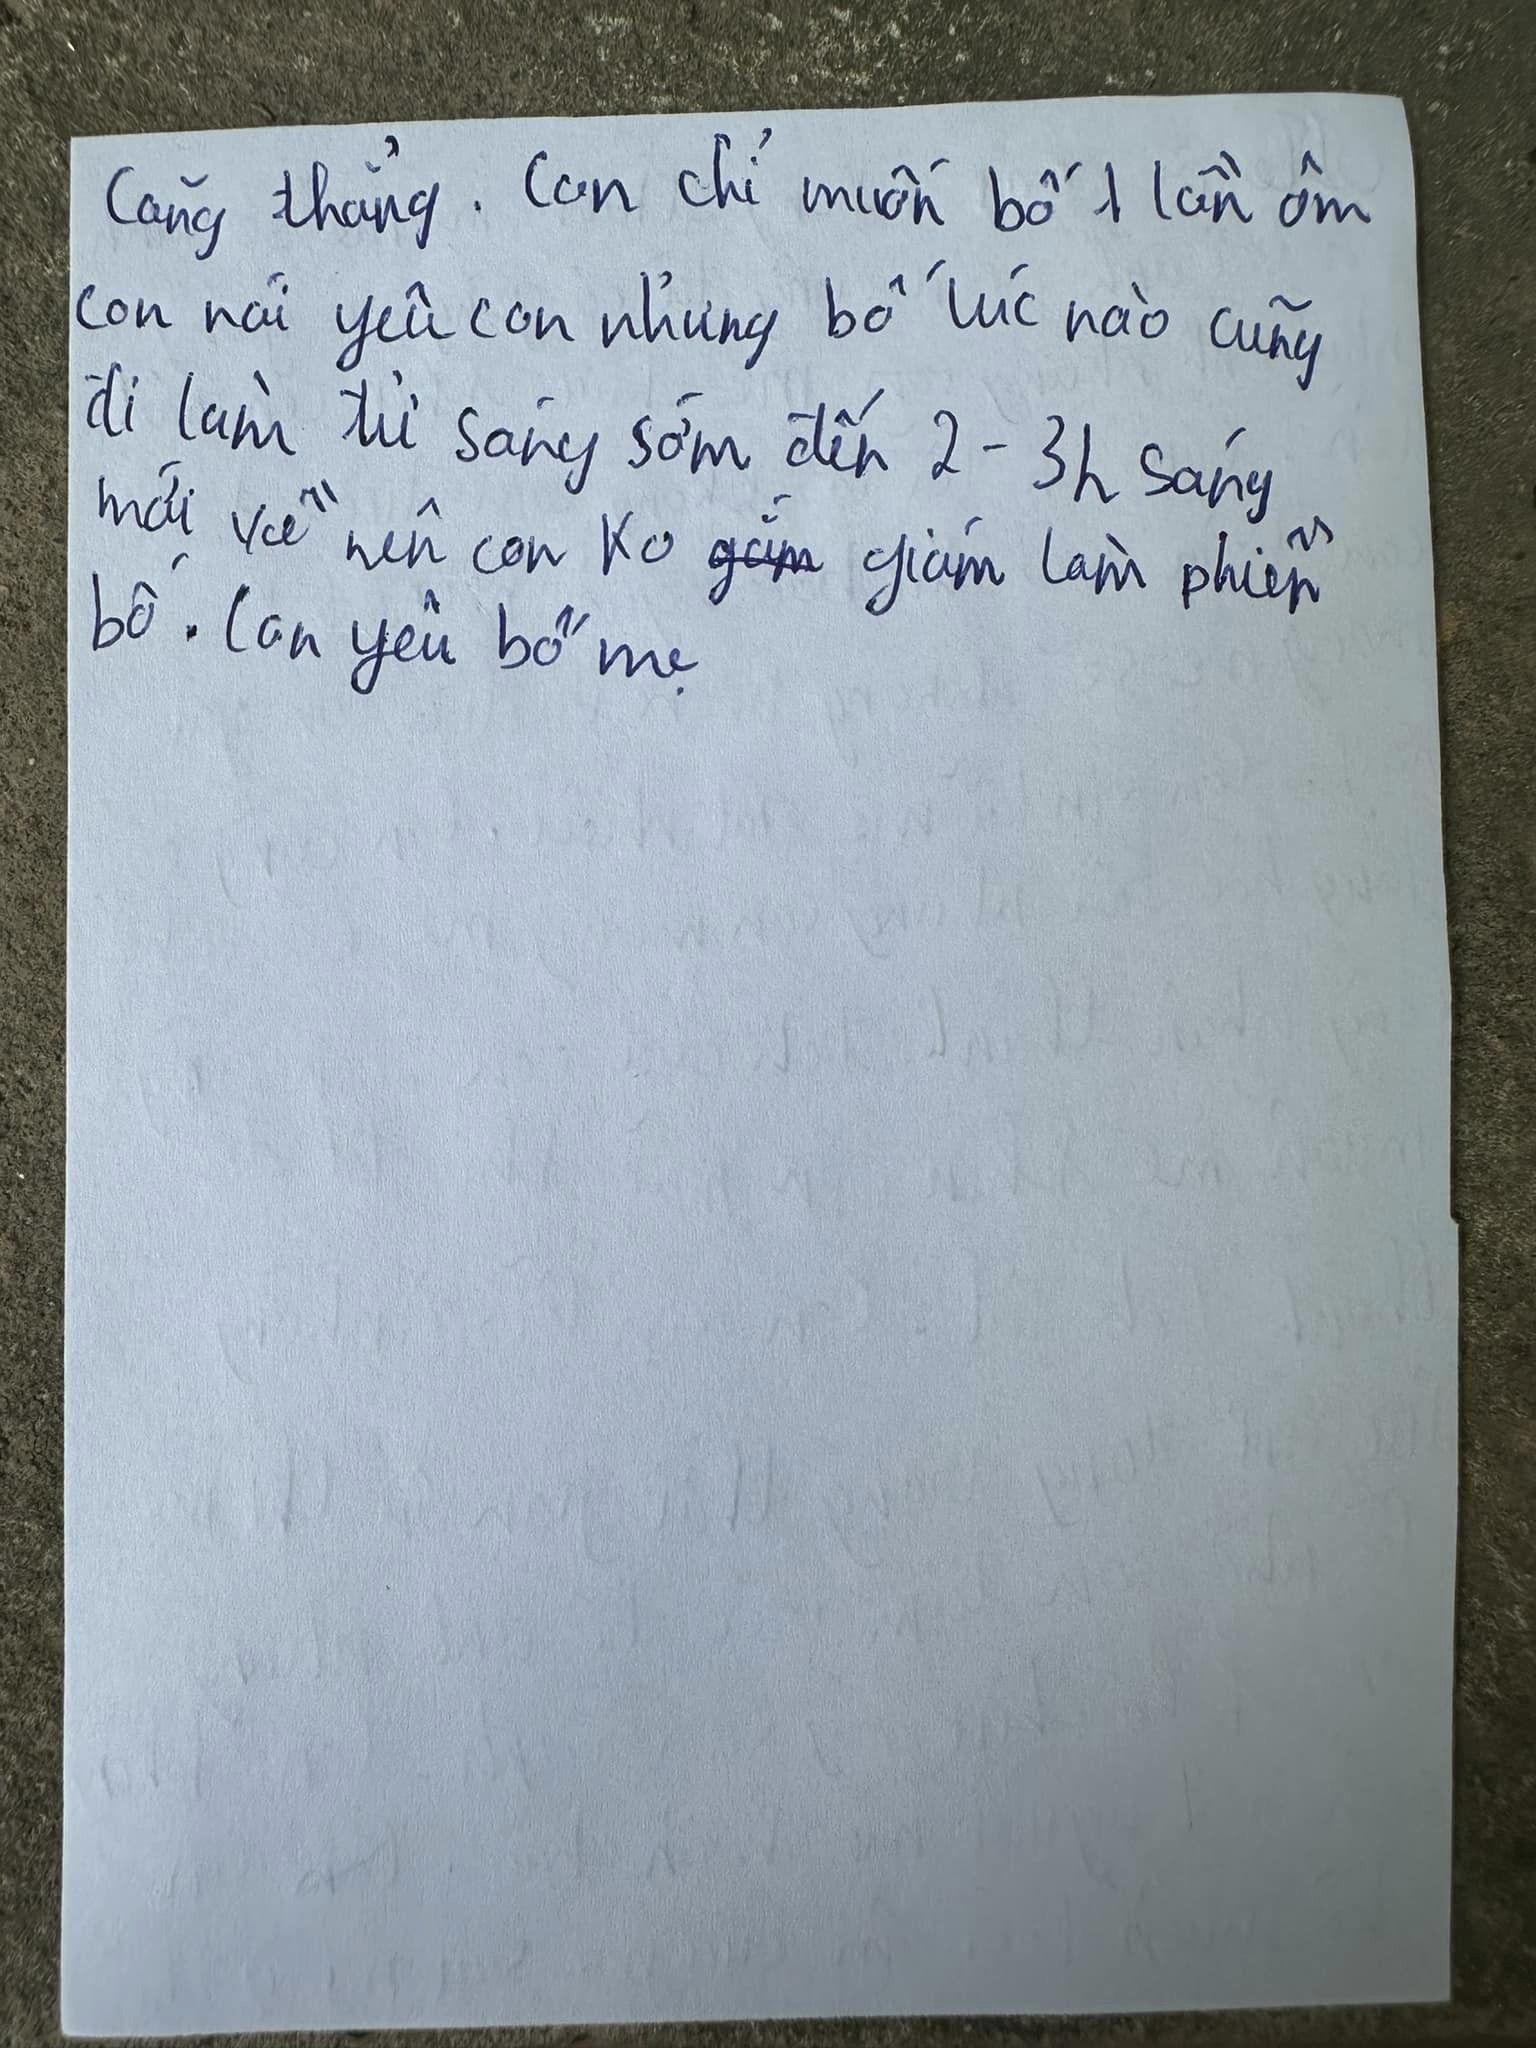 Căng thẳng. Con chỉ muốn bố 1 lần ôm
con nói yêu con nhưng bố lúc nào cũng
đi làm từ sáng sớm đến 2-3h sáng
mới về nên con ko giám làm phiền
bố. Con yêu bố mẹ